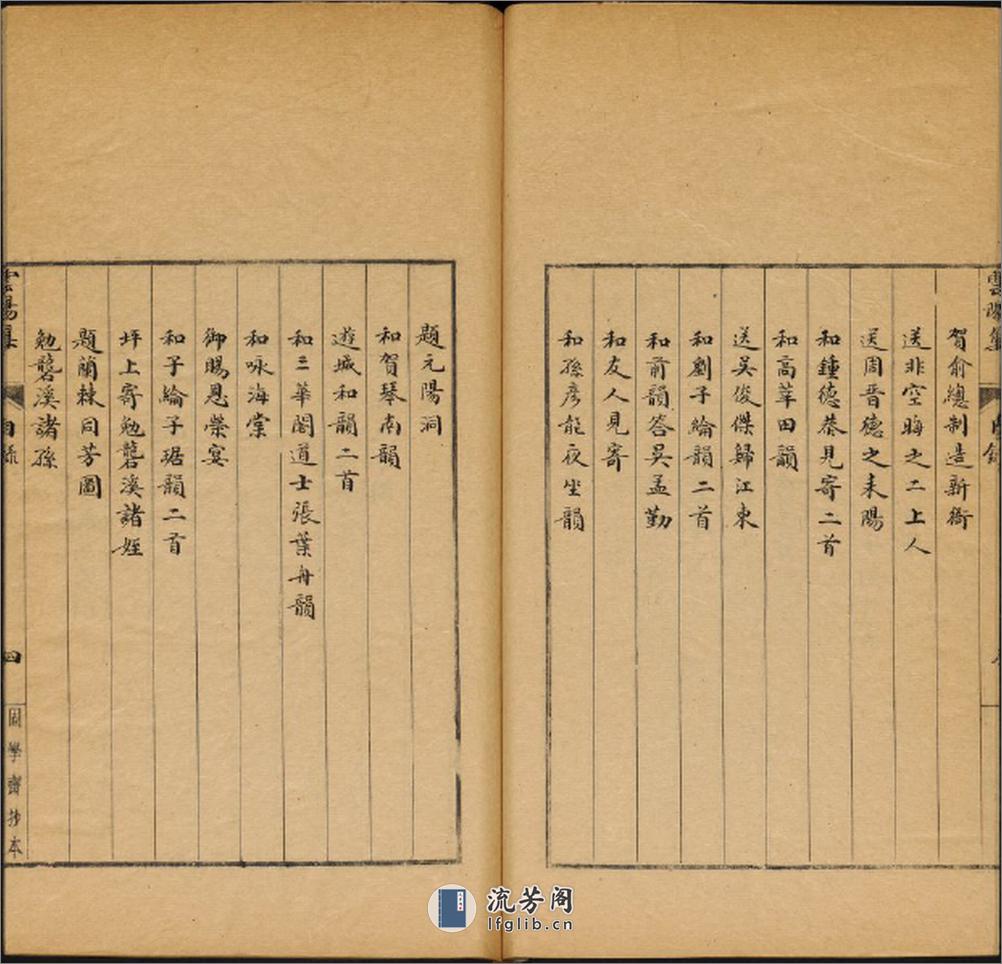 雲陽集
目錄
賀俞總制造新衙
送非空晦之二上人
送周晋德之耒陽
和鍾德恭見寄二首
和高莘田韻
送吳俊傑歸江東
和劉子綸韻二首
和前韻答吳孟勤
和友人見寄
和孫彦能夜坐韻
題元陽洞
和賀琴南韻
遊城和韻二首
和三華閣道士張葉舟韻
和咏海棠
御賜恩榮宴
和子綸子琚韻二首
坪上寄勉礱溪諸姪
題蘭棘同芳圖
勉礱溪諸孫
雲陽集
目錄
四
困學齋抄本
流芳阁
lfglib.cn